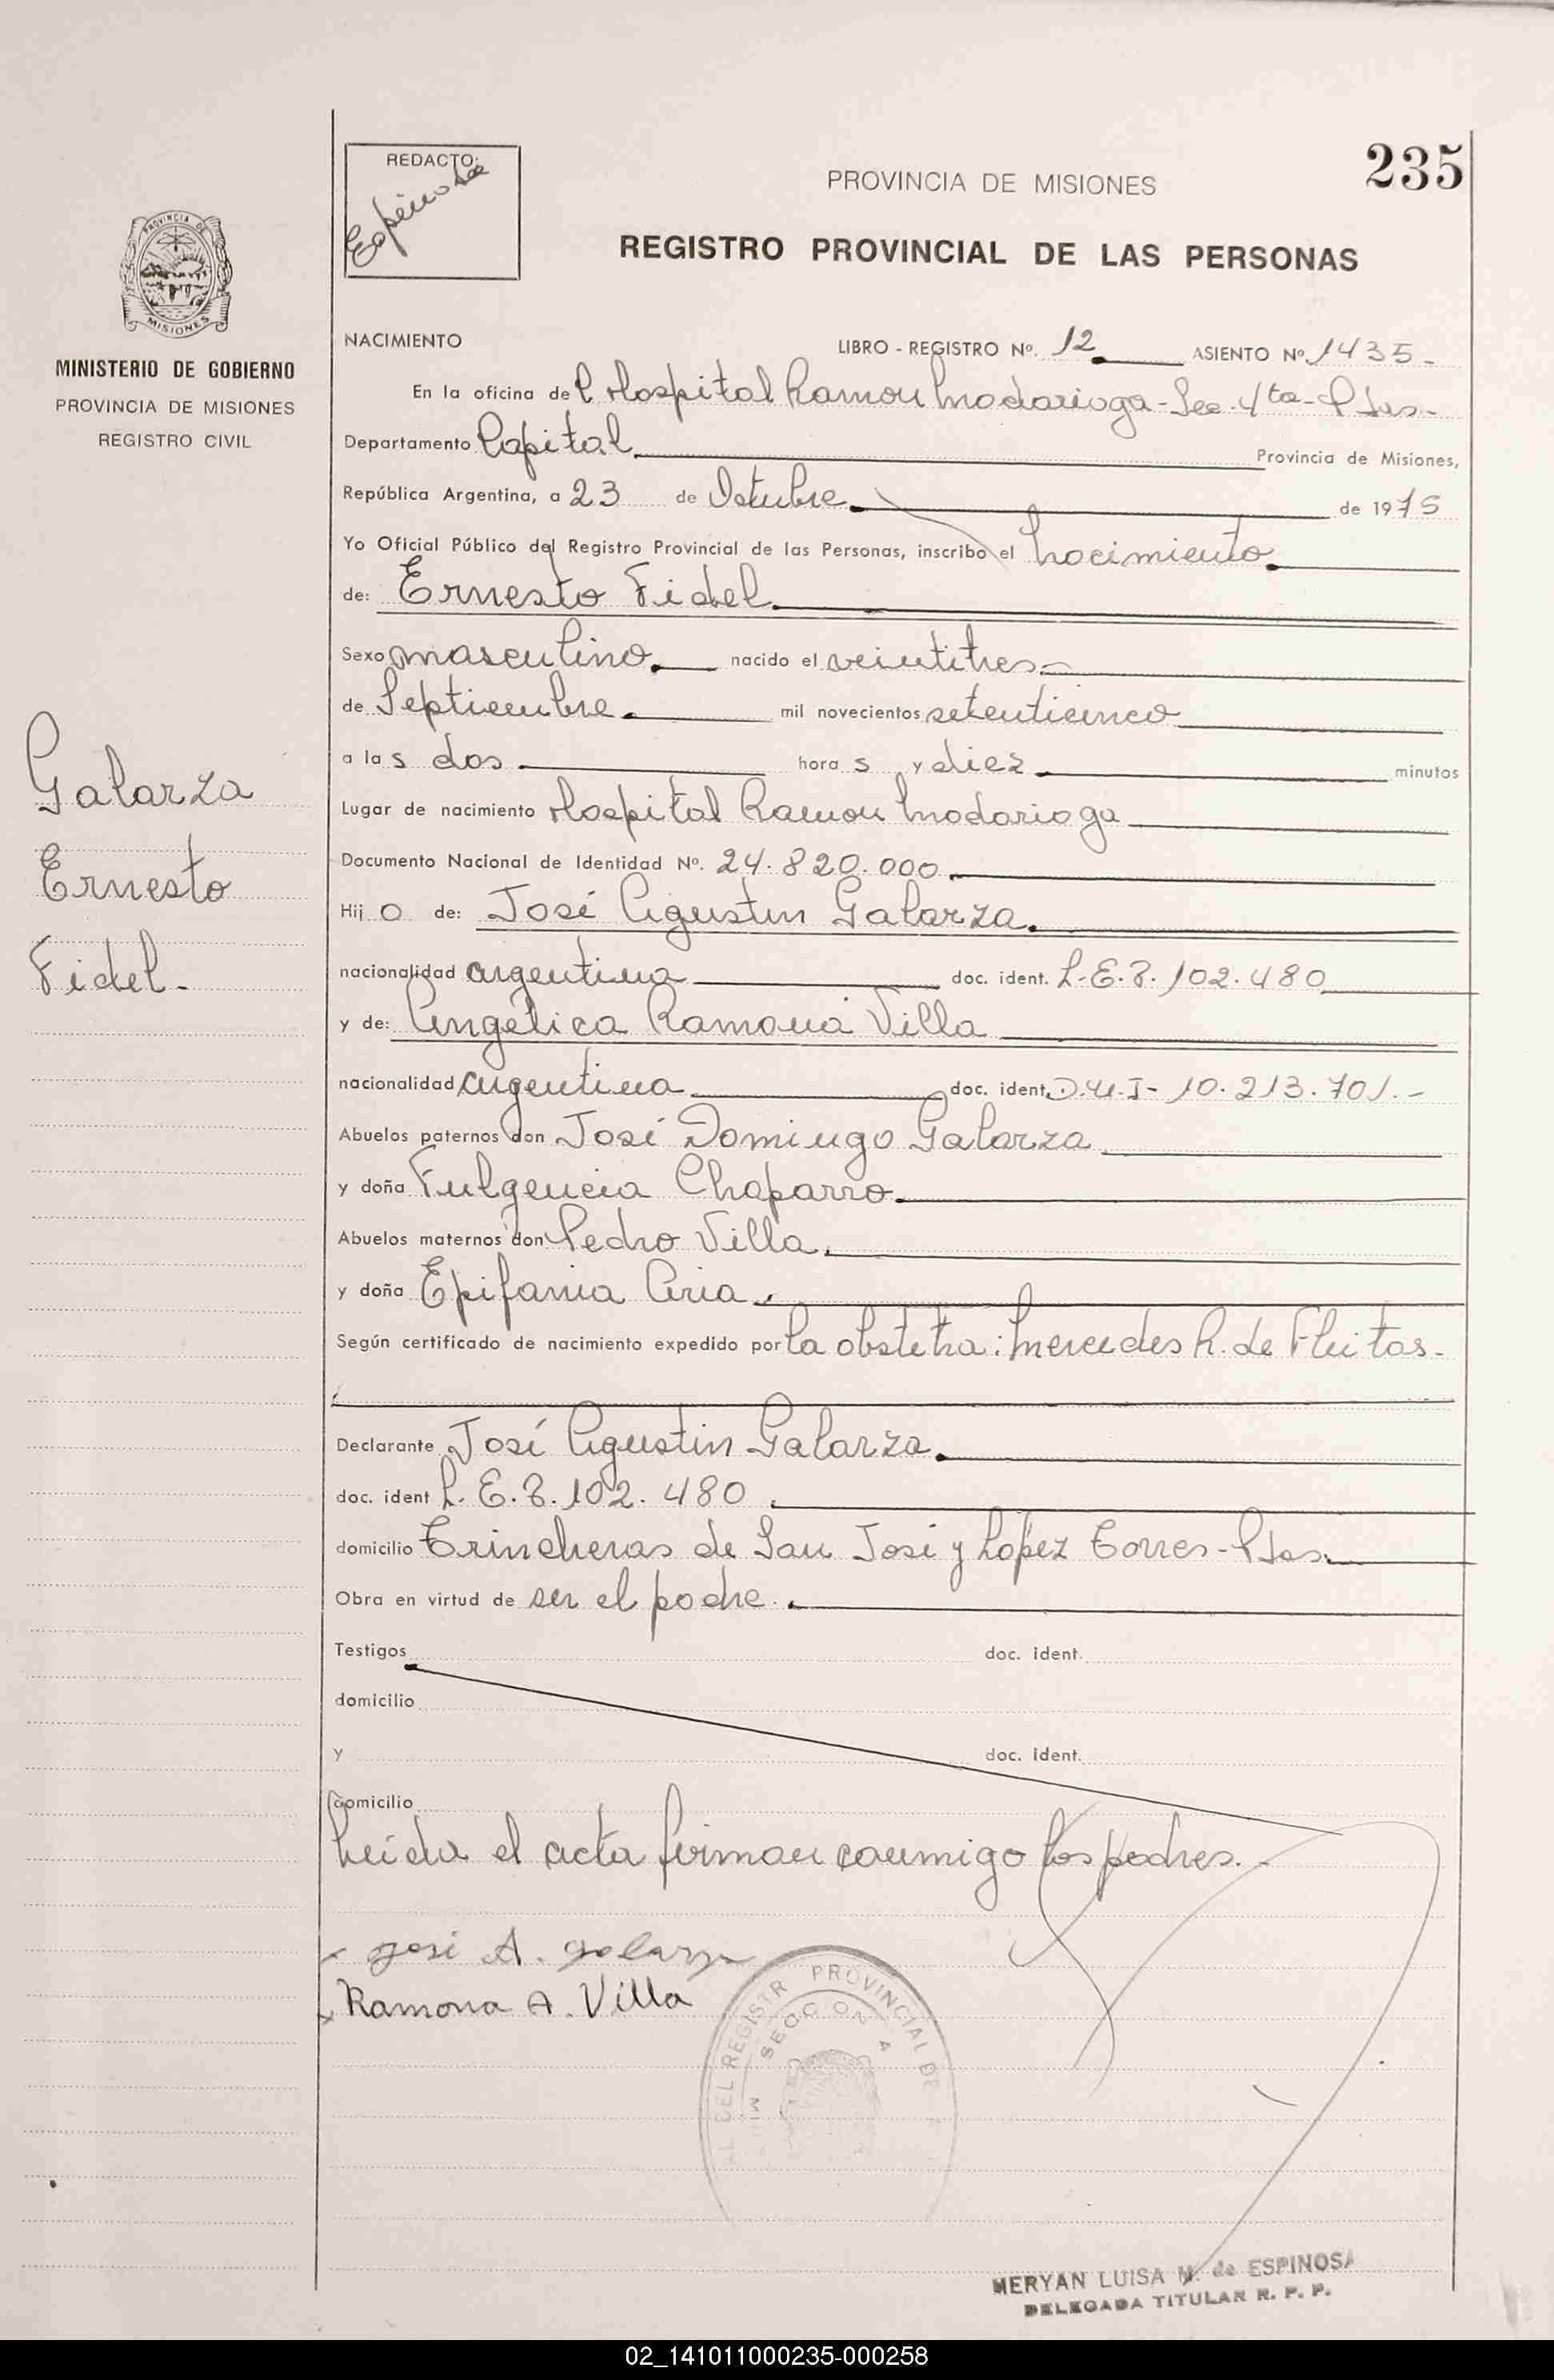 REDACTO:
Espinosa
PROVINCIA DE MISIONES
235
REGISTRO PROVINCIAL DE LAS PERSONAS
PROVINCIA DE
MISIONES
MINISTERIO DE GOBIERNO
PROVINCIA DE MISIONES
REGISTRO CIVIL
NACIMIENTO LIBRO - REGISTRO Nº. 12 ASIENTO Nº. 1435-
En la oficina del Hospital Ramon Madariaga - Sec. 4ta - Pdas-
Departamento Capital Provincia de Misiones,
República Argentina, a 23 de Octubre de 1975
Yo Oficial Público del Registro Provincial de las Personas, inscribo el nacimiento
de: Ernesto Fidel
Sexo masculino nacido el veintitres
de Septiembre mil novecientos setenticinco
a las dos horas y diez minutos
Lugar de nacimiento Hospital Ramon Madariaga
Documento Nacional de Identidad Nº. 24.820.000
Hijo de: José Agustin Galarza
nacionalidad argentina doc. ident. L.E. 8.102.480
y de: Angélica Ramona Villa
nacionalidad argentina doc. ident. D.N.I- 10.213.701.-
Abuelos paternos don José Domingo Galarza
y doña Fulgencia Chaparro
Abuelos maternos don Pedro Villa
y doña Epifania Aria
Según certificado de nacimiento expedido por la obstetra: Mercedes R. de Fleitas.
Declarante José Agustin Galarza
doc. ident L.E. 8.102.480
domicilio Trincheras de San José y López Torres - Pdas.
Obra en virtud de ser el padre.
Testigos doc. ident.
domicilio
y doc. ident.
domicilio
Leída el acta firman conmigo los padres.-
José A. Galarza
Ramona A. Villa
Galarza
Ernesto
Fidel-
DEL REGISTR PROVINCIAL DE
SECCION 4
MERYAN LUISA M. de ESPINOSA
DELEGADA TITULAR R. P. P.
02_141011000235-000258